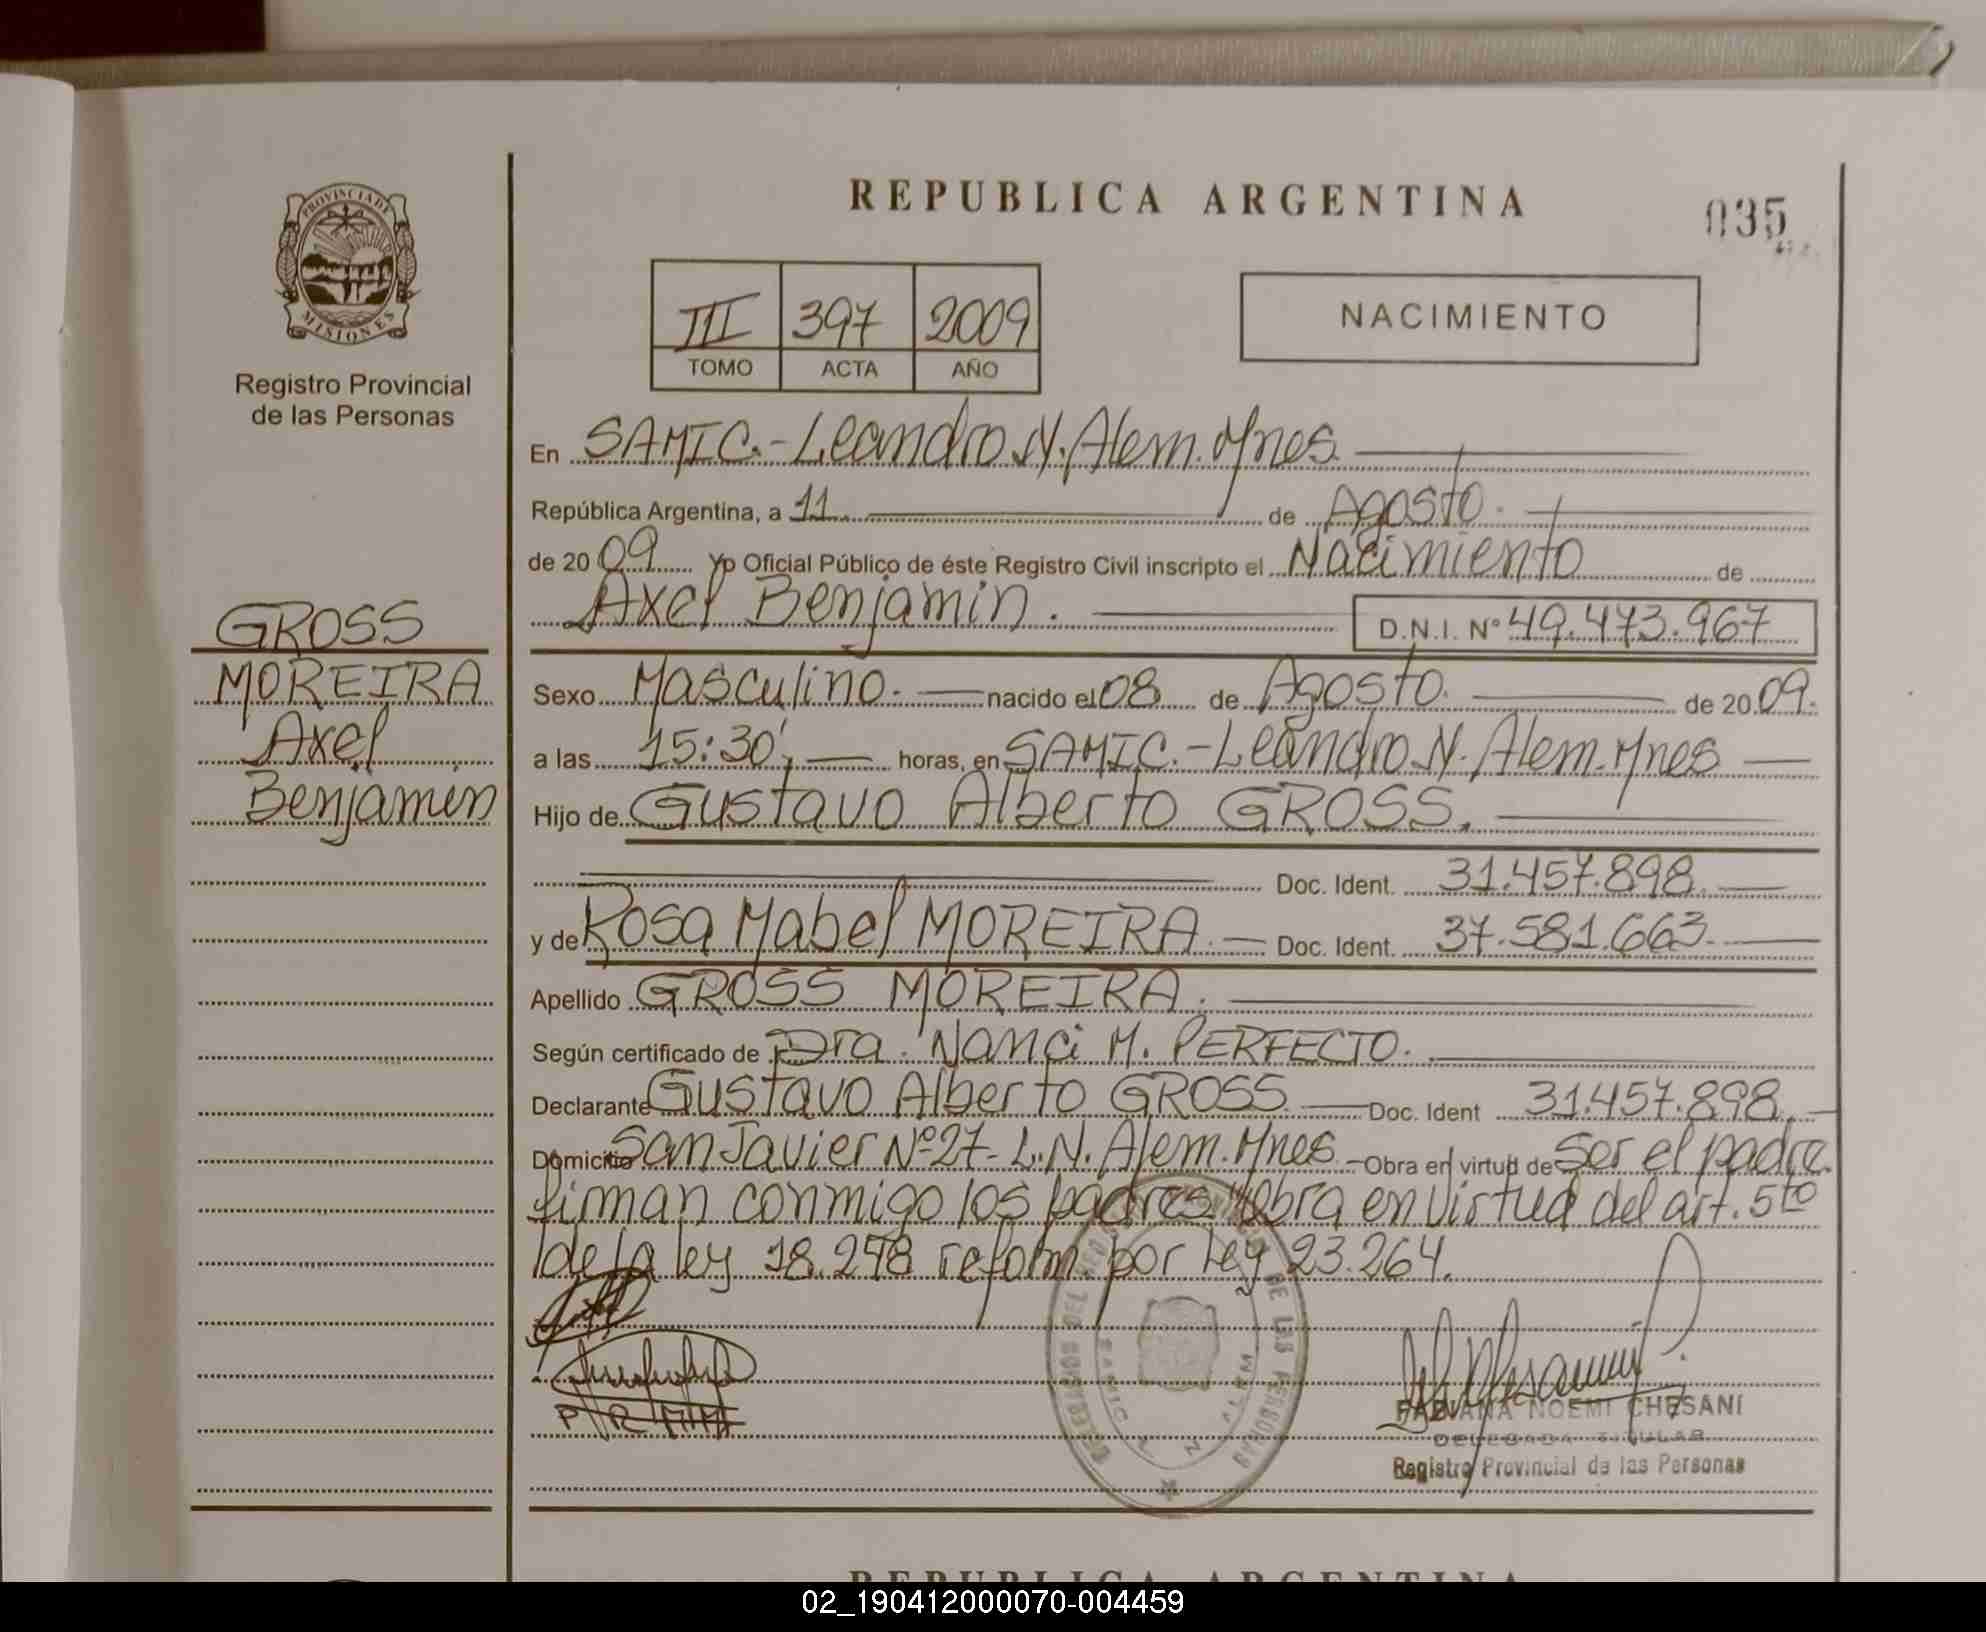 REPUBLICA ARGENTINA
035
PROVINCIA DE
MISIONES
Registro Provincial
de las Personas
III 397 2009
TOMO ACTA AÑO
NACIMIENTO
En SAMIC.-Leandro N. Alem. Mnes.
República Argentina, a 11 de Agosto.
de 2009 Yo Oficial Público de éste Registro Civil inscripto el Nacimiento de
Axel Benjamin. D.N.I. Nº 49.473.967
GROSS
MOREIRA
Axel
Benjamin
Sexo Masculino. nacido el 08 de Agosto. de 2009.
a las 15:30' horas, en SAMIC.-Leandro N. Alem. Mnes
Hijo de Gustavo Alberto GROSS.
Doc. Ident. 31.457.898.
y de Rosa Mabel MOREIRA. Doc. Ident. 37.581.663.
Apellido GROSS MOREIRA.
Según certificado de Dra. Nanci M. PERFECTO.
Declarante Gustavo Alberto GROSS Doc. Ident 31.457.898.
Domicilio San Javier Nº 27- L.N. Alem. Mnes. Obra en virtud de Ser el padre.
firman conmigo los padres y obra en virtud del art. 5to
de la ley 18.248 reform. por ley 23.264.
DE LAS PERSONAS
SAMIC L N ALEM
FABIANA NOEMI CHESANI
DELEGADA TITULAR
Registro Provincial de las Personas
REPUBLICA ARGENTINA
02_190412000070-004459